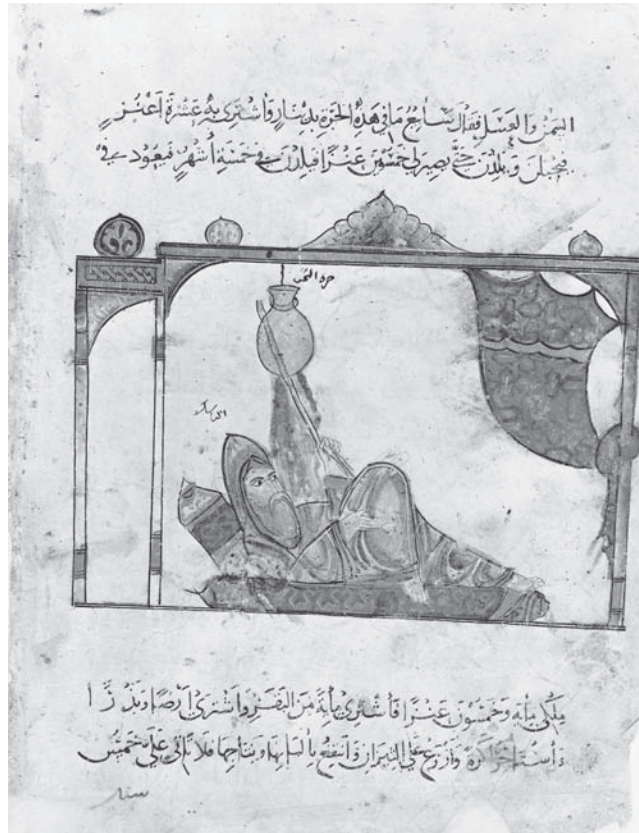 السمن والعسل فقال سابيع ما في هذه الجرة بدينار واشتري به عشرة اعنز
فيحبلن ويلدن حتى يصير لي خمسون عنزا فيلدن في خمسة اشهر فيعود في
جرة السمن
الناسك
ملكي مايه وخمسون عنزا فاشتري مايه من البقر واشتري ارضا وبذرا
واستاجر اكرة وازرع على الثيران وانتفع بالبانها ونتاجها فلا تاتي علي خمس